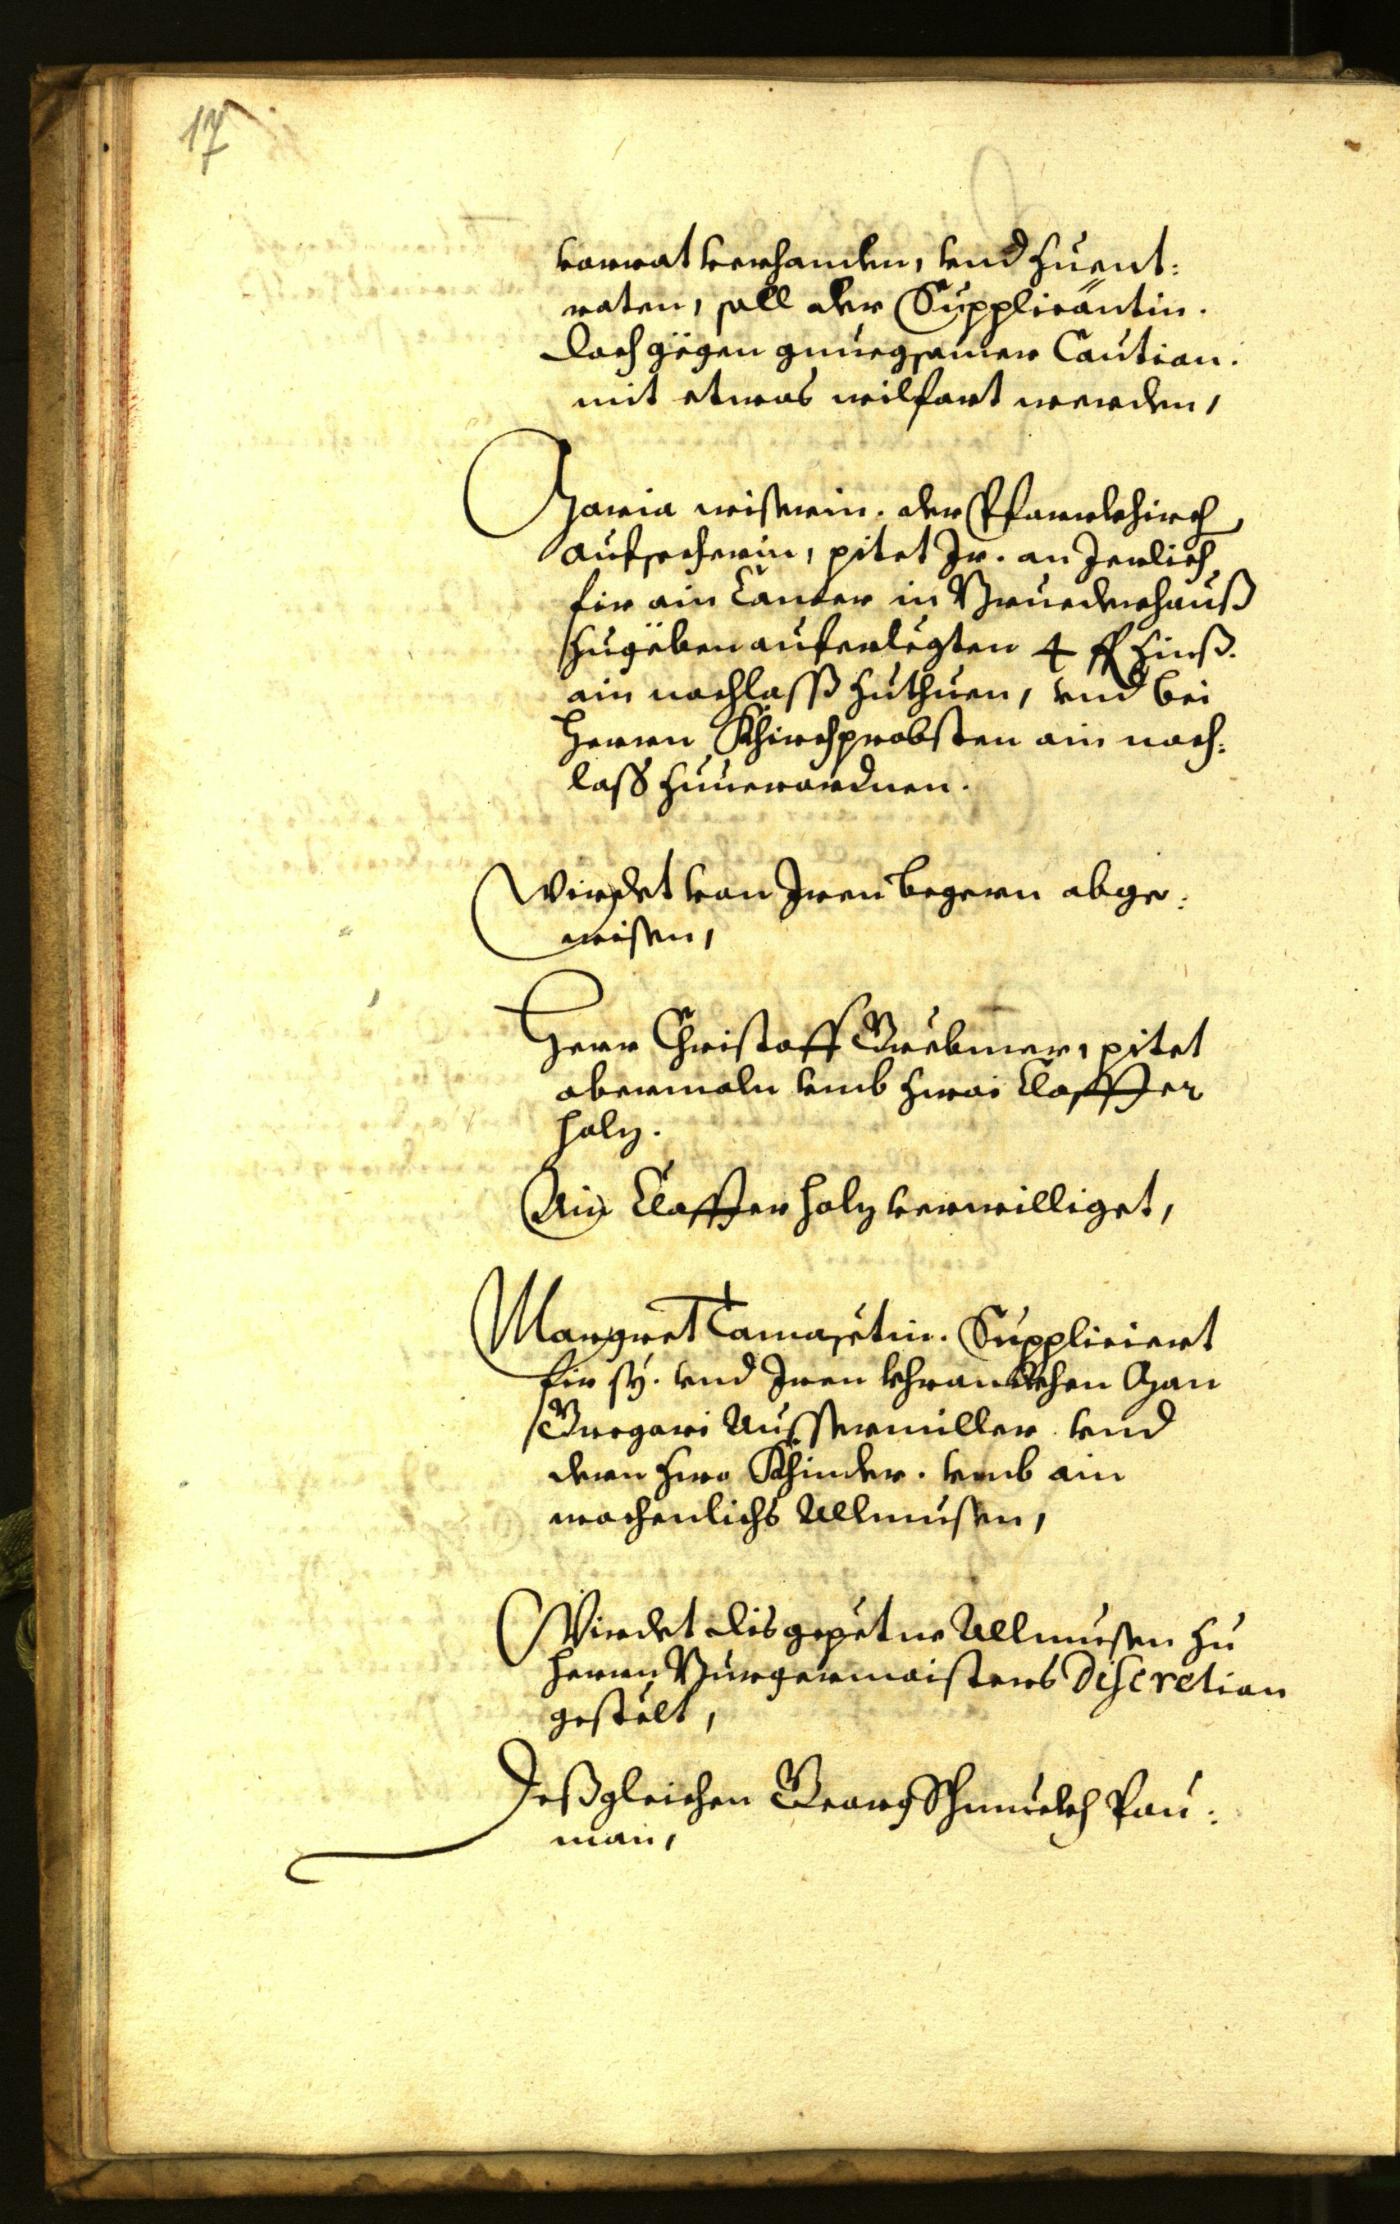 17
vorrat verhanden, vnd zuent:
raten, soll der Supplicäntin.
doch gegen gnuegsamer Caution.
mit etwas wilfart werden,
Maria wiserin. der Pfarrkhirch
aufseherin, pitet Ir. an Jerlich
fir ain Camer in Bruederhauß
zugeben auferlegten 4 fl Zinß.
ain nachlaß zuthuen, vnd bei
Herrn Khirchprobsten ain nach:
lass zuuerordnen.
Wirdet von Iren begern abge:
wisen,
Herr Christoff Grebmer, pitet
abermaln vmb zwai Claffter
holz.
Ain Claffter holz verwilliget,
Margret Tamasetin. Suppliciert
fir sy. vnd Iren khranckhen Man
Gregori Aussermiller vnd
dern zwo Khinder. vmb ain
wochenlichs Allmusen,
Wirdet dis gepetne Allmusen zu
herrn Burgermaisters Discretion
gestelt,
Deßgleichen Georg Schmuckh Pau:
man,